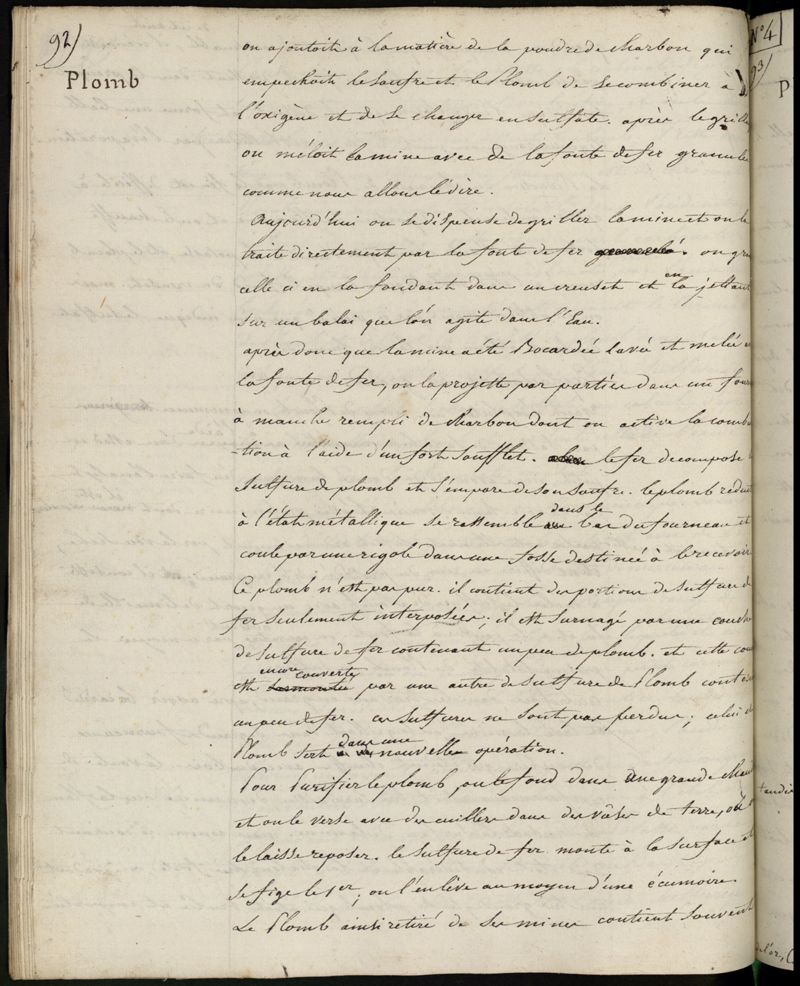 92)
Plomb
on ajoutoit à la matière de la poudre de charbon qui
empechoit le soufre et le Plomb de se combiner à
l'oxigène et de se changer en sulfate. après le grill
on méloit la mine avec de la fonte de fer granulée
comme nous allons le dire.
Aujourd'hui on se dispense de griller la mine et on la
traite directement par la fonte de fer granulé. on gra
celle ci en la fondant dans un creuset et en la jettant
sur un balai que l'on agite dans l'Eau.
après donc que la mine a été Bocardée lavée et melée à
la fonte de fer, on la projette par parties dans un four
à manche rempli de charbon dont on active la combus
-tion à l'aide d'un fort soufflet. le fer decompose le
sulfure de plomb et s'empare de son soufre. le plomb reduit
à l'état métallique se rassemble dans le bas du fourneau et
coule par une rigole dans une fosse destinée à le recevoir
Ce plomb n'est pas pur. il contient des portions de sulfure de
fer seulement interposées; il est surnagé par une couche
de sulfure de fer contenant un peu de plomb. et cette cou
est encore couverte par une autre de sulfure de Plomb conten
un peu de fer. ces sulfures ne sont pas perdus; celui de
Plomb sert dans une nouvelle opération.
Pour Purifier le plomb, on le fond dans une grande chaud
et on le verse avec des cuillers dans des vases de terre, où
le laisse reposer. le sulfure de fer monte à la surface et
se fige le 1er, on l'enlève au moyen d'une écumoire
Le Plomb ainsi retiré de ses mines contient souvent
N°4
93)
P
tandis
de l'or,